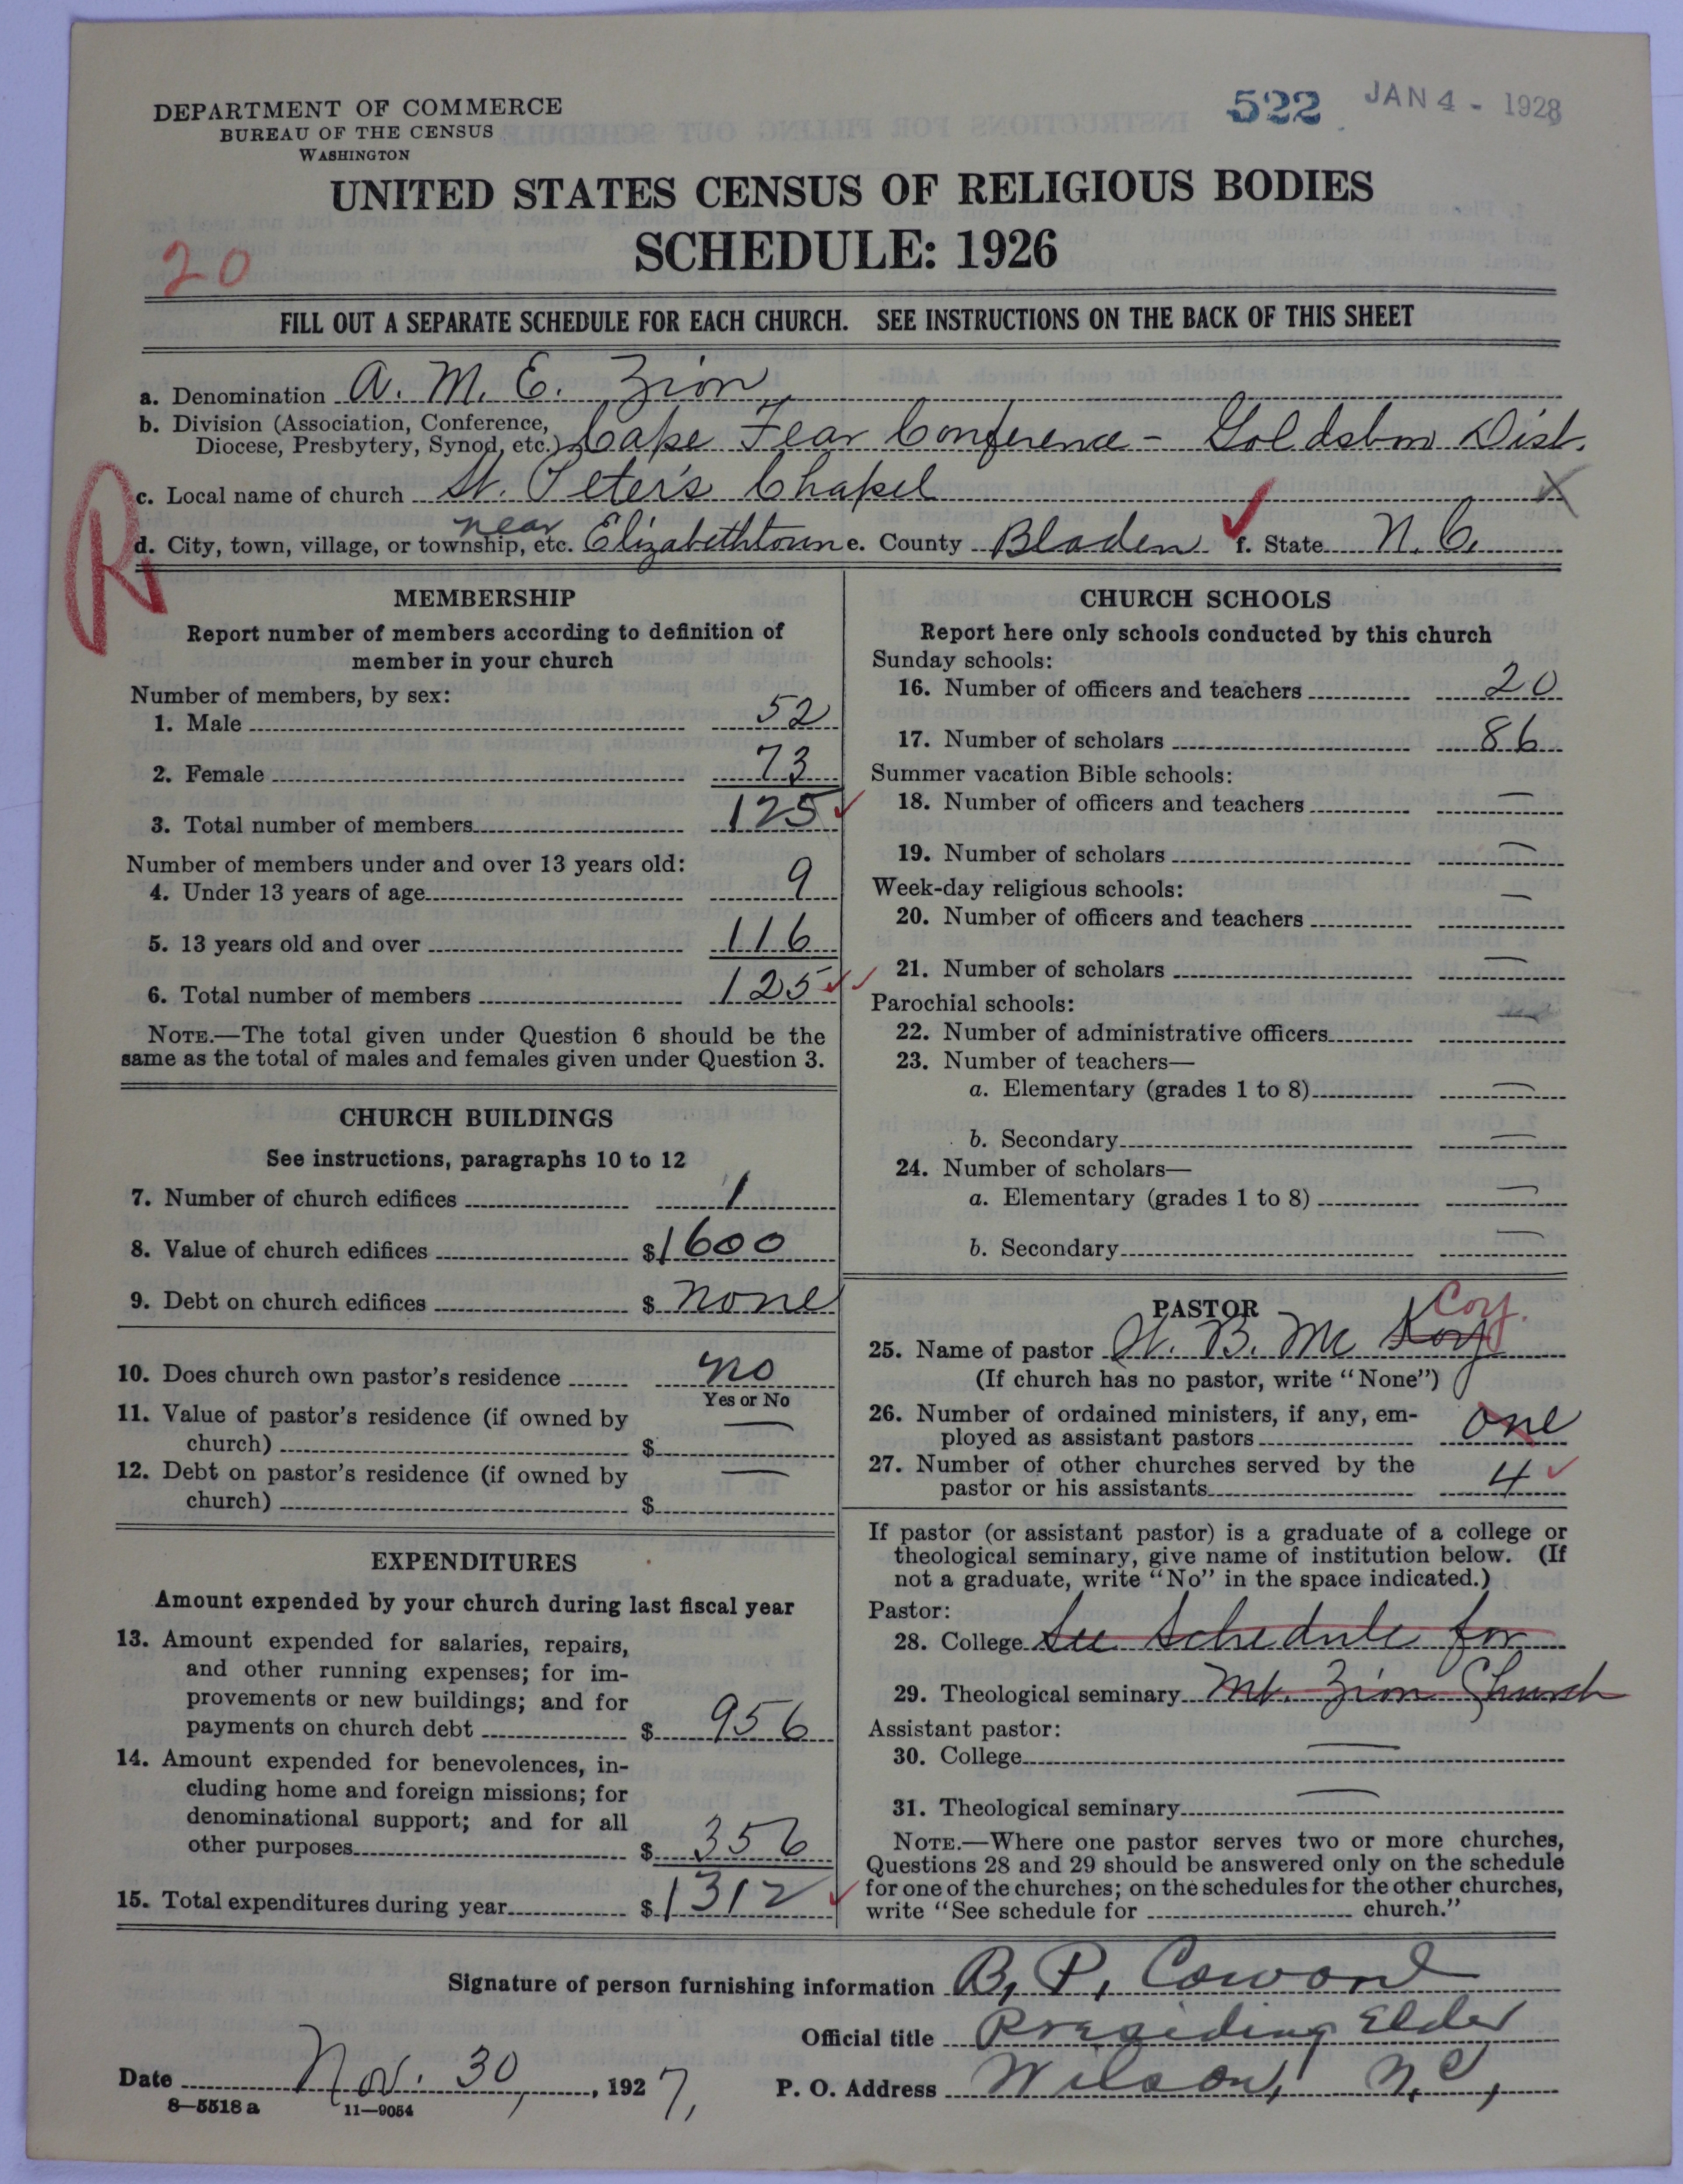 522 JAN 4 - 1928
DEPARTMENT OF COMMERCE
BUREAU OF THE CENSUS
WASHINGTON
UNITED STATES CENSUS OF RELIGIOUS BODIES
SCHEDULE: 1926
20
FILL OUT A SEPARATE SCHEDULE FOR EACH CHURCH. SEE INSTRUCTIONS ON THE BACK OF THIS SHEET
a. Denomination A. M. E. Zion
b. Division (Association, Conference,
Diocese, Presbytery, Synod, etc.) Cape Fear Conference - Goldsboro Dist.
R
c. Local name of church St. Peter's Chapel
near
d. City, town, village, or township, etc. Elizabethtown e. County Bladen f. State N. C.
MEMBERSHIP
Report number of members according to definition of
member in your church
Number of members, by sex:
1. Male 52
2. Female 73
3. Total number of members 125
Number of members under and over 13 years old:
4. Under 13 years of age 9
5. 13 years old and over 116
6. Total number of members 125
NOTE.—The total given under Question 6 should be the
same as the total of males and females given under Question 3.
CHURCH BUILDINGS
See instructions, paragraphs 10 to 12
7. Number of church edifices 1
8. Value of church edifices $1600
9. Debt on church edifices $ none
10. Does church own pastor's residence no
Yes or No
11. Value of pastor's residence (if owned by
church) $ —
12. Debt on pastor's residence (if owned by
church) $ —
EXPENDITURES
Amount expended by your church during last fiscal year
13. Amount expended for salaries, repairs,
and other running expenses; for im-
provements or new buildings; and for
payments on church debt $ 956
14. Amount expended for benevolences, in-
cluding home and foreign missions; for
denominational support; and for all
other purposes $ 356
15. Total expenditures during year $ 1312
CHURCH SCHOOLS
Report here only schools conducted by this church
Sunday schools:
16. Number of officers and teachers 20
17. Number of scholars 86
Summer vacation Bible schools:
18. Number of officers and teachers —
19. Number of scholars —
Week-day religious schools:
20. Number of officers and teachers —
21. Number of scholars —
Parochial schools:
22. Number of administrative officers
23. Number of teachers—
a. Elementary (grades 1 to 8) —
b. Secondary —
24. Number of scholars—
a. Elementary (grades 1 to 8) —
b. Secondary —
PASTOR
Coy.
25. Name of pastor W. B. Mc Koy
(If church has no pastor, write "None")
26. Number of ordained ministers, if any, em-
ployed as assistant pastors one
27. Number of other churches served by the
pastor or his assistants 4
If pastor (or assistant pastor) is a graduate of a college or
theological seminary, give name of institution below. (If
not a graduate, write "No" in the space indicated.)
Pastor:
28. College See Schedule for
29. Theological seminary Mt. Zion Church
Assistant pastor:
30. College —
31. Theological seminary —
NOTE.—Where one pastor serves two or more churches,
Questions 28 and 29 should be answered only on the schedule
for one of the churches; on the schedules for the other churches,
write "See schedule for church."
Signature of person furnishing information B. P. Coward
Official title Presiding Elder
Date Nov. 30, 1927, P. O. Address Wilson, N.C.,
8—5518 a 11—9054